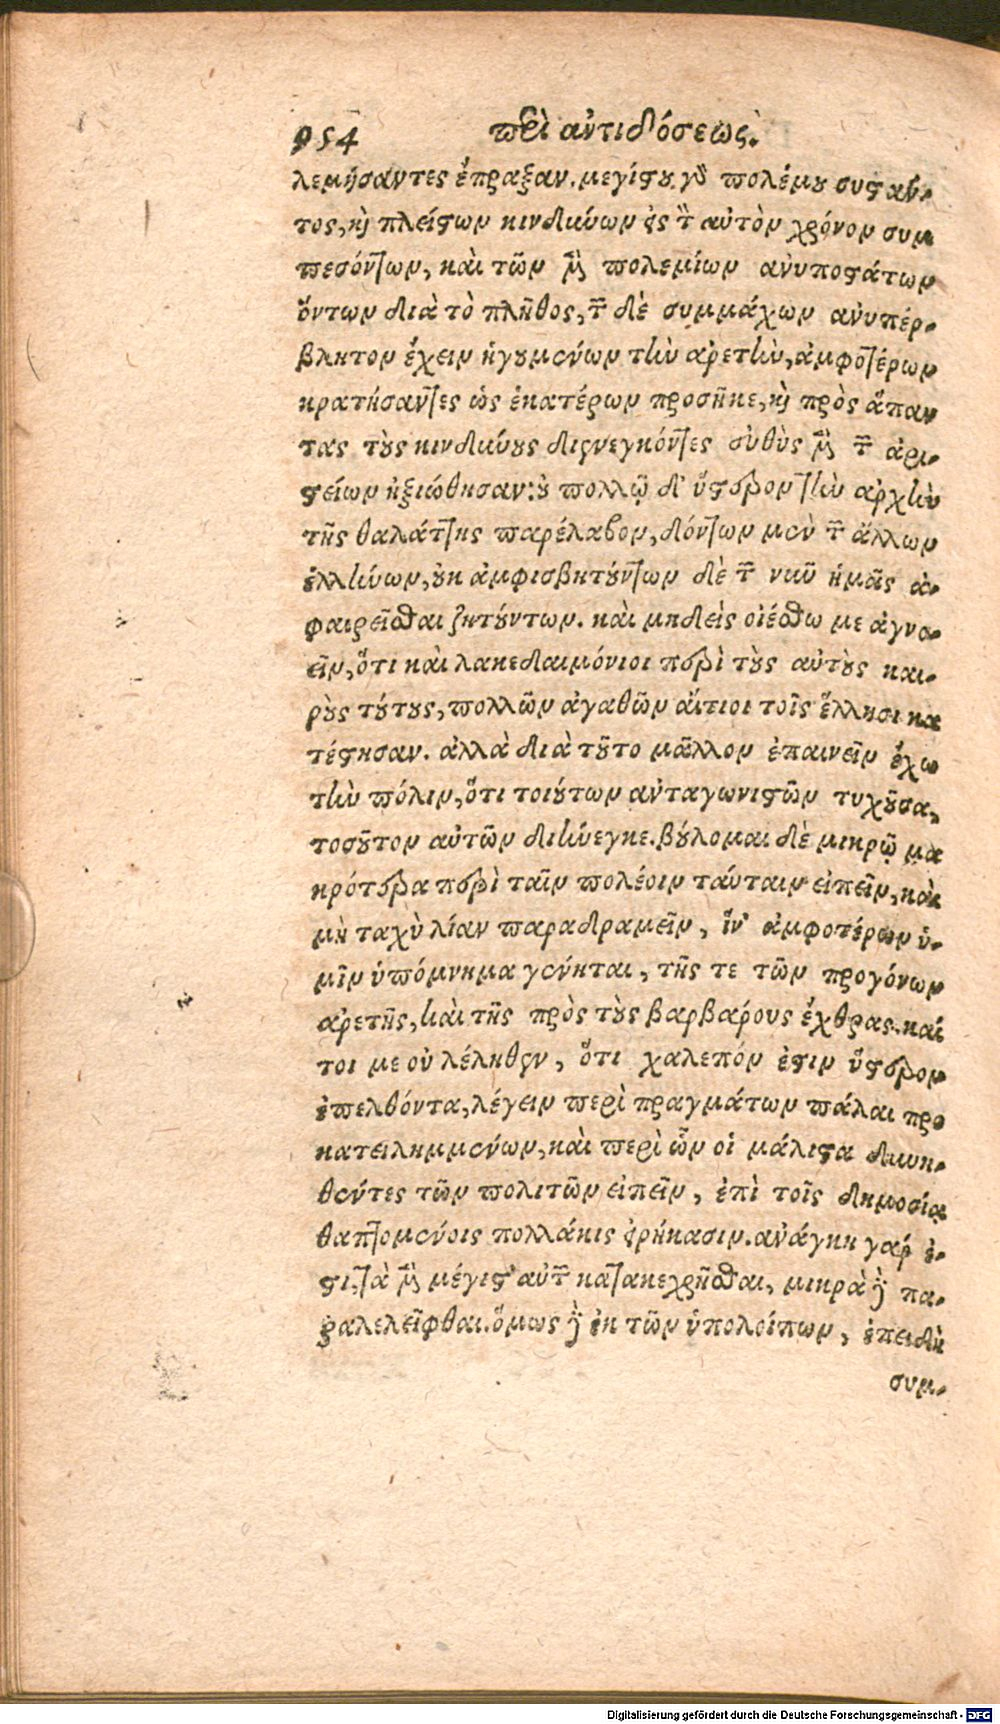 954 περὶ ἀντιδόσεως.
λεμήσαντες ἔπραξαν. μεγίστου γδ πολέμου συσταν-
τος, κὶ πλείστων κινδύνων εἰς τ αὐτὸν χρόνον συμ
πεσόντων, καὶ τῶν μ πολεμίων ἀνυποστάτων
ὄντων διὰ τὸ πλῆθος, τ δὲ συμμάχων ἀνυπέρ-
βλητον ἔχειν ἡγουμένων τὴν ἀρετὴν, ἀμφοτέρων
κρατήσαντες ὡς ἑκατέρων προσῆκε, κὶ πρὸς ἅπαν
τας τοὺς κινδύνους διενεγκόντες εὐθὺς μ τ ἀρι-
στείων ἠξιώθησαν: οὐ πολλῷ δ' ὕστερον τὴν ἀρχὴν
τῆς θαλάττης παρέλαβον, δόντων μὲν τ ἄλλων
ἑλλήνων, οὐκ ἀμφισβητούντων δὲ τ νῦν ἡμᾶς ἀ-
φαιρεῖσθαι ζητούντων. καὶ μηδεὶς οἰέσθω με ἀγνο-
εῖν, ὅτι καὶ λακεδαιμόνιοι περὶ τοὺς αὐτοὺς και-
ροὺς τούτους, πολλῶν ἀγαθῶν αἴτιοι τοῖς ἕλλησι κα
τέστησαν. ἀλλὰ διὰ τοῦτο μᾶλλον ἐπαινεῖν ἔχω
τὴν πόλιν, ὅτι τοιούτων ἀνταγωνιστῶν τυχοῦσα,
τοσοῦτον αὐτῶν διήνεγκε. βούλομαι δὲ μικρῷ μα
κρότερα περὶ ταῖν πολέοιν ταύταιν εἰπεῖν, καὶ
μὴ ταχὺ λίαν παραδραμεῖν, ἵν' ἀμφοτέρων ὑ-
μῖν ὑπόμνημα γένηται, τῆς τε τῶν προγόνων
ἀρετῆς, καὶ τῆς πρὸς τοὺς βαρβάρους ἔχθρας. καί
τοι με οὐ λέληθεν, ὅτι χαλεπόν ἐστιν ὕστερον
ἐπελθόντα, λέγειν περὶ πραγμάτων πάλαι προ
κατειλημμένων, καὶ περὶ ὧν οἱ μάλιστα δυνη-
θέντες τῶν πολιτῶν εἰπεῖν, ἐπὶ τοῖς δημοσίᾳ
θαπτομένοις πολλάκις εἰρήκασιν. ἀνάγκη γὰρ ἐ-
στι, τὰ μ μέγιστ' αὐτ κατακεχρῆσθαι, μικρὰ δὲ πα-
ραλελεῖφθαι. ὅμως δὲ ἐκ τῶν ὑπολοίπων, ἐπειδὴ
συμ-
Digitalisierung gefördert durch die Deutsche Forschungsgemeinschaft - DFG